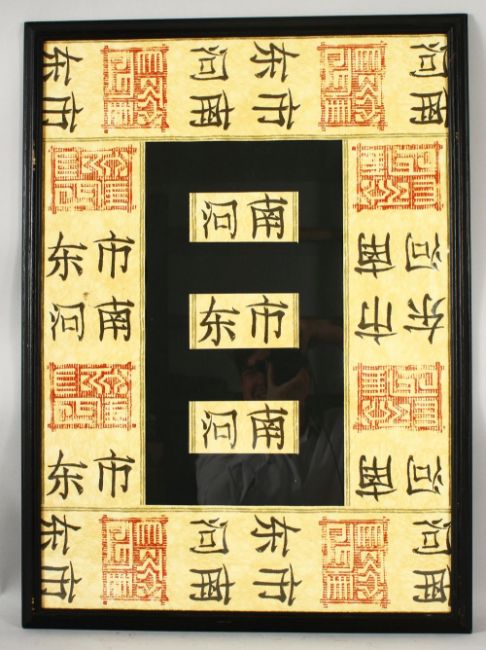 东 河 东 河
市 南 市 南
东市
河南
东市
河南
东市
河南
河南
东市
河南
东 河 东 河
市 南 市 南